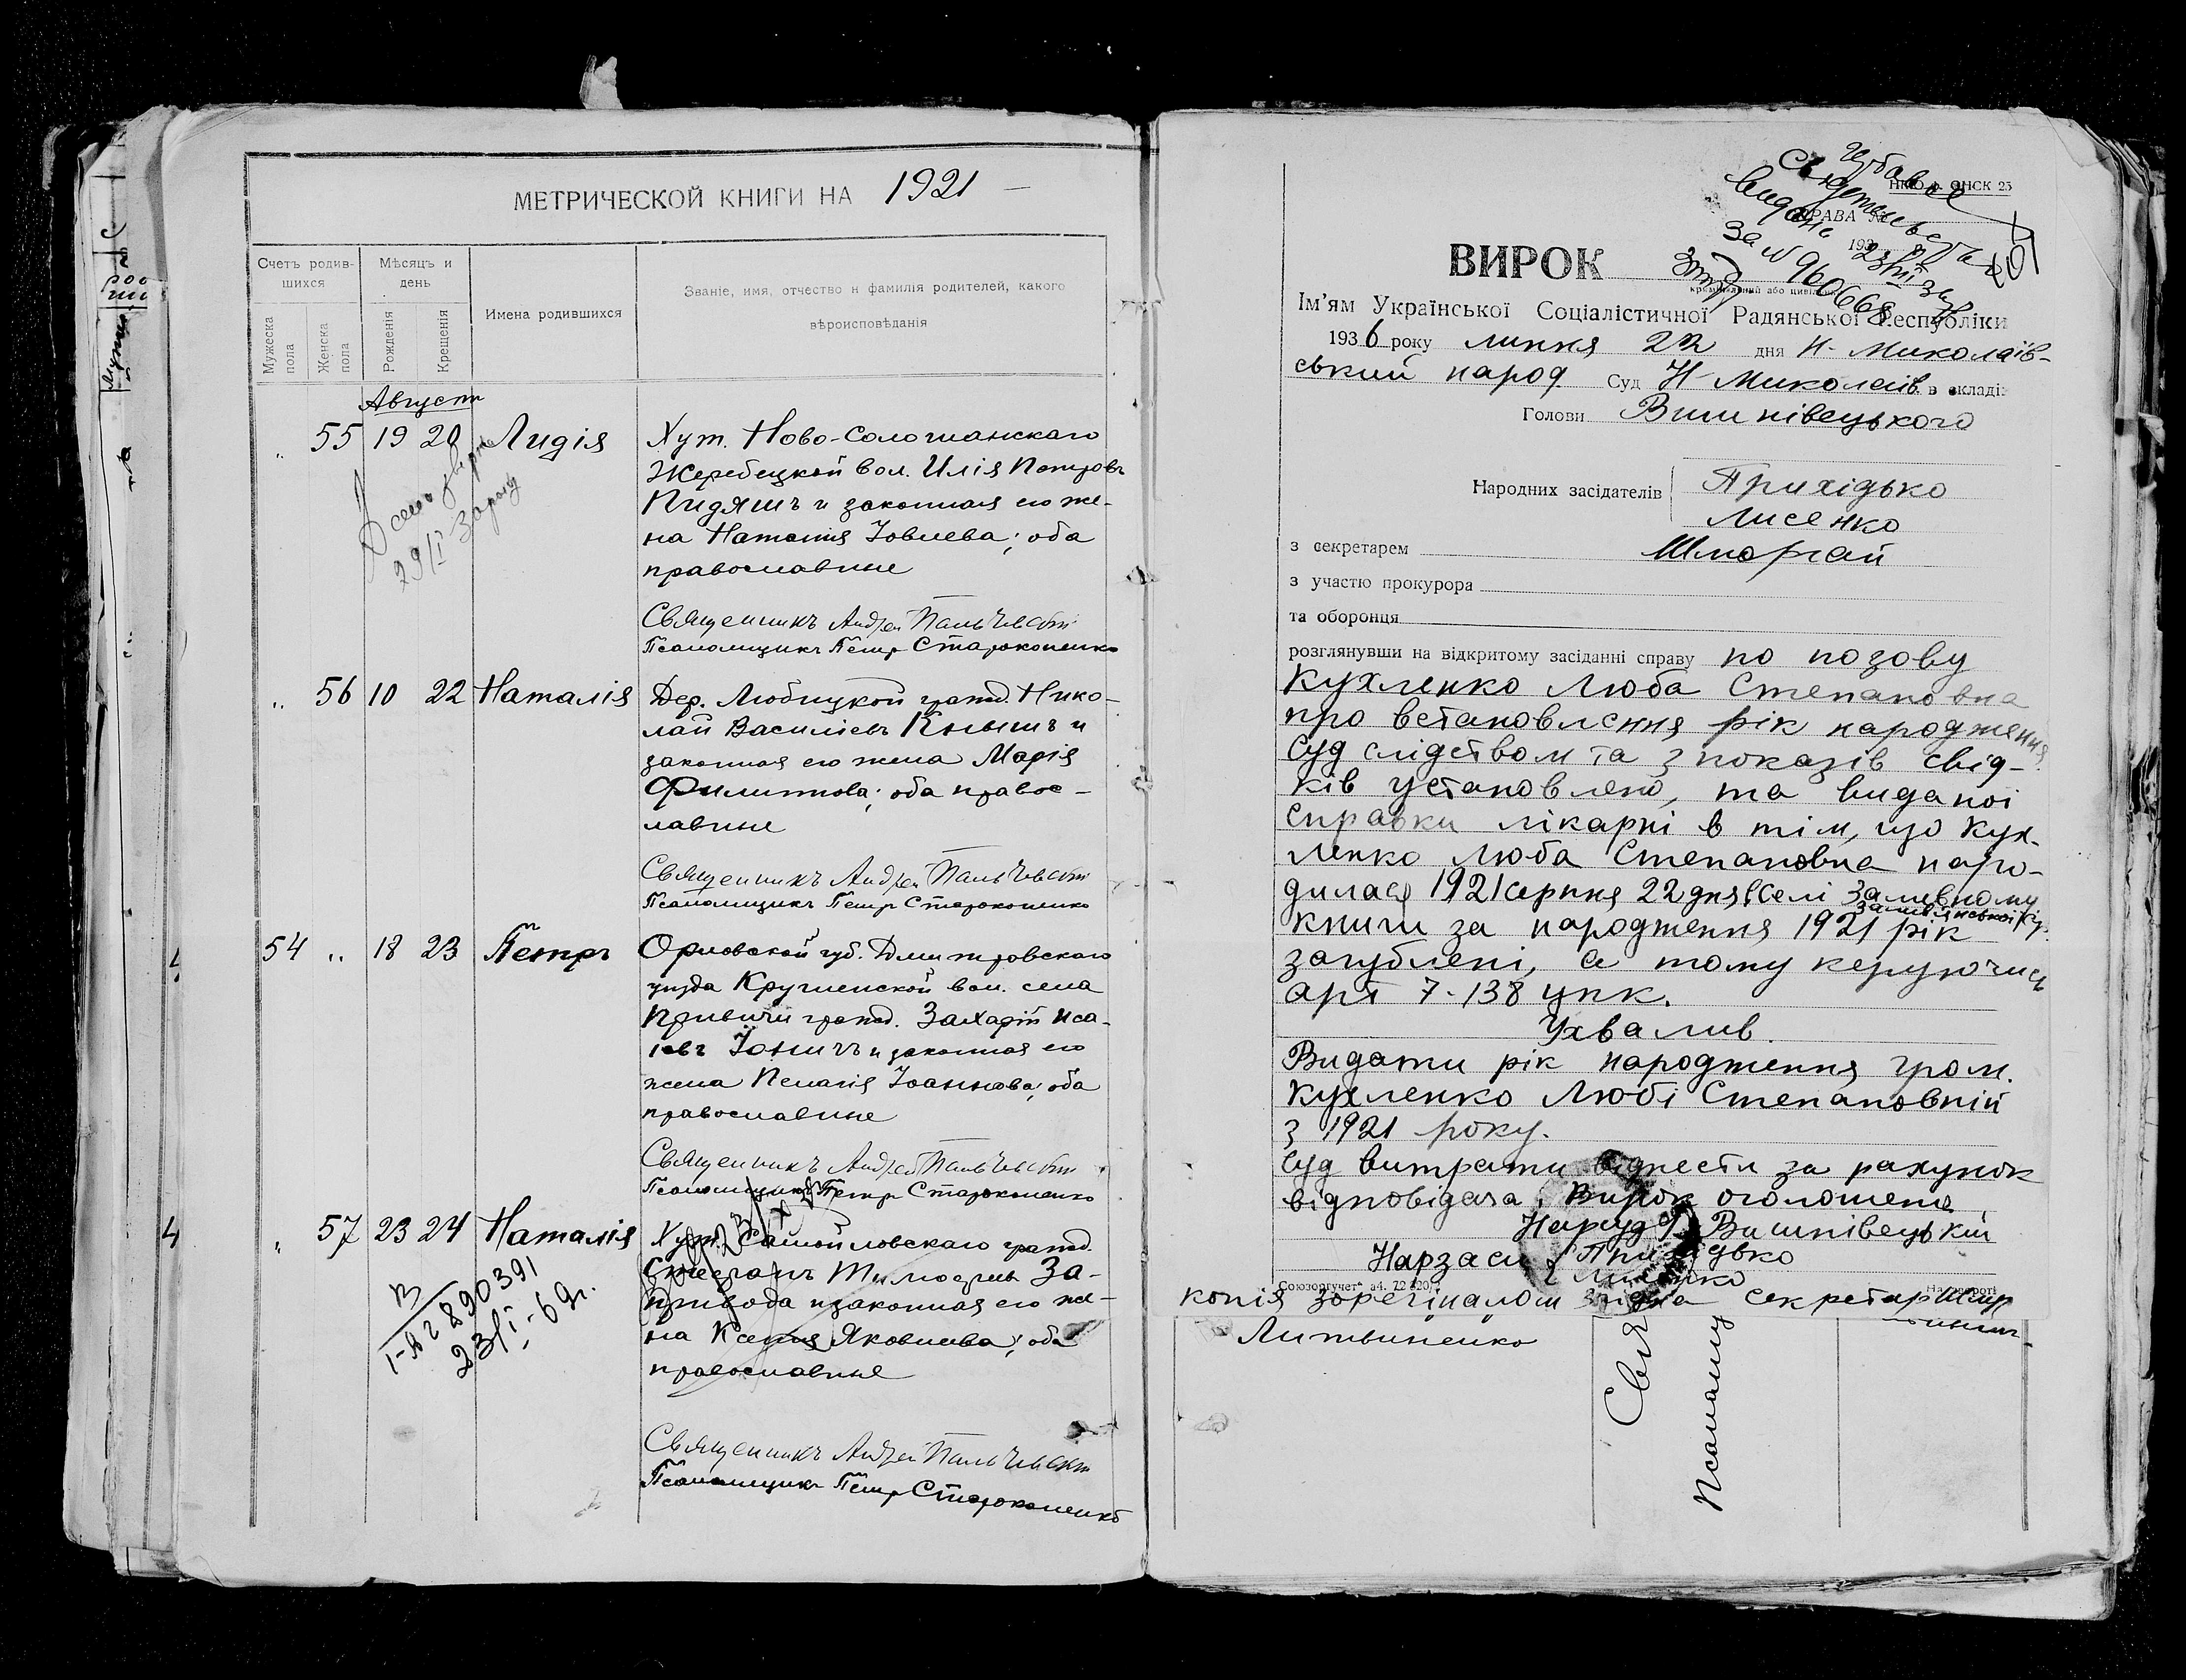 МЕТРИЧЕСКОЙ КНИГИ НА 1921
Счетъ родив-
шихся
Мѣсяцъ и
день
Имена родившихся
Званіе, имя, отчество и фамилія родителей, какого
вѣроисповѣданія
Мужеска
пола
Женска
пола
Рожденія
Крещенія
Августъ
55 19 20 Лидія
Хут. Ново-Солошанскаго
Жеребецкой вол. Илія Петровъ
Пидяшъ и законная его же-
на Наталія Іовлева; оба
православные
29/I
Священникъ Андрей
Псаломщикъ Петръ Староконенко
56 10 22 Наталія
Дер. Любицкой гражд. Нико-
лай Василіевъ Кнышъ и
законная его жена Марія
Филиппова; оба правос-
лавные
Священникъ Андрей
Псаломщикъ Петръ Староконенко
54 18 23 Петръ
Орловской губ. Дмитровскаго
уѣзда Кругленской вол. села
гражд. Захарій Иса-
іевъ и законная его
жена Пелагія Іоаннова; оба
православные
Священникъ Андрей
Псаломщикъ Петръ Староконенко
57 23 24 Наталія
Хут. Самойловскаго гражд.
Стефанъ Тимофеевъ За-
привода и законная его же-
на Ксенія Яковлева; оба
православные
890391
23/I-6
Священникъ Андрей
Псаломщикъ Петръ Староконенко
СПРАВА №
193
за № 960668
ВИРОК
кримінальний або цивільний
Ім'ям Української Соціалістичної Радянської Республіки
1936 року липня 22 дня Н-Миколаїв-
ський народ Суд Н-Миколаїв. в складі:
Голови Вишнівецького
Народних засідателів Прихідько
Лисенко
з секретарем Шморгай
з участю прокурора
та оборонця
розглянувши на відкритому засіданні справу по позову
Кухленко Люба Степановна
про встановлення рік народження
Суд слідством та з показів свід-
ків установлено, та виданої
справки лікарні в тім, що Кух-
ленко Люба Степановна наро-
дилася 1921 серпня 22 дня в селі Заливному
книги за народження 1921 рік
загублені, а тому керуючись
арт 7-138 цпк.
Ухвалив.
Видати рік народження гром.
Кухленко Любі Степановній
з 1921 року.
Суд витрати віднести за рахунок
відповідача, Вирок оголошено
Нарсуддя Вишнівецький
Нарзасід. Прихідько
Лисенко
копія з орегіналом згідна секретар
Литвиненко
Свя
Псаломщ